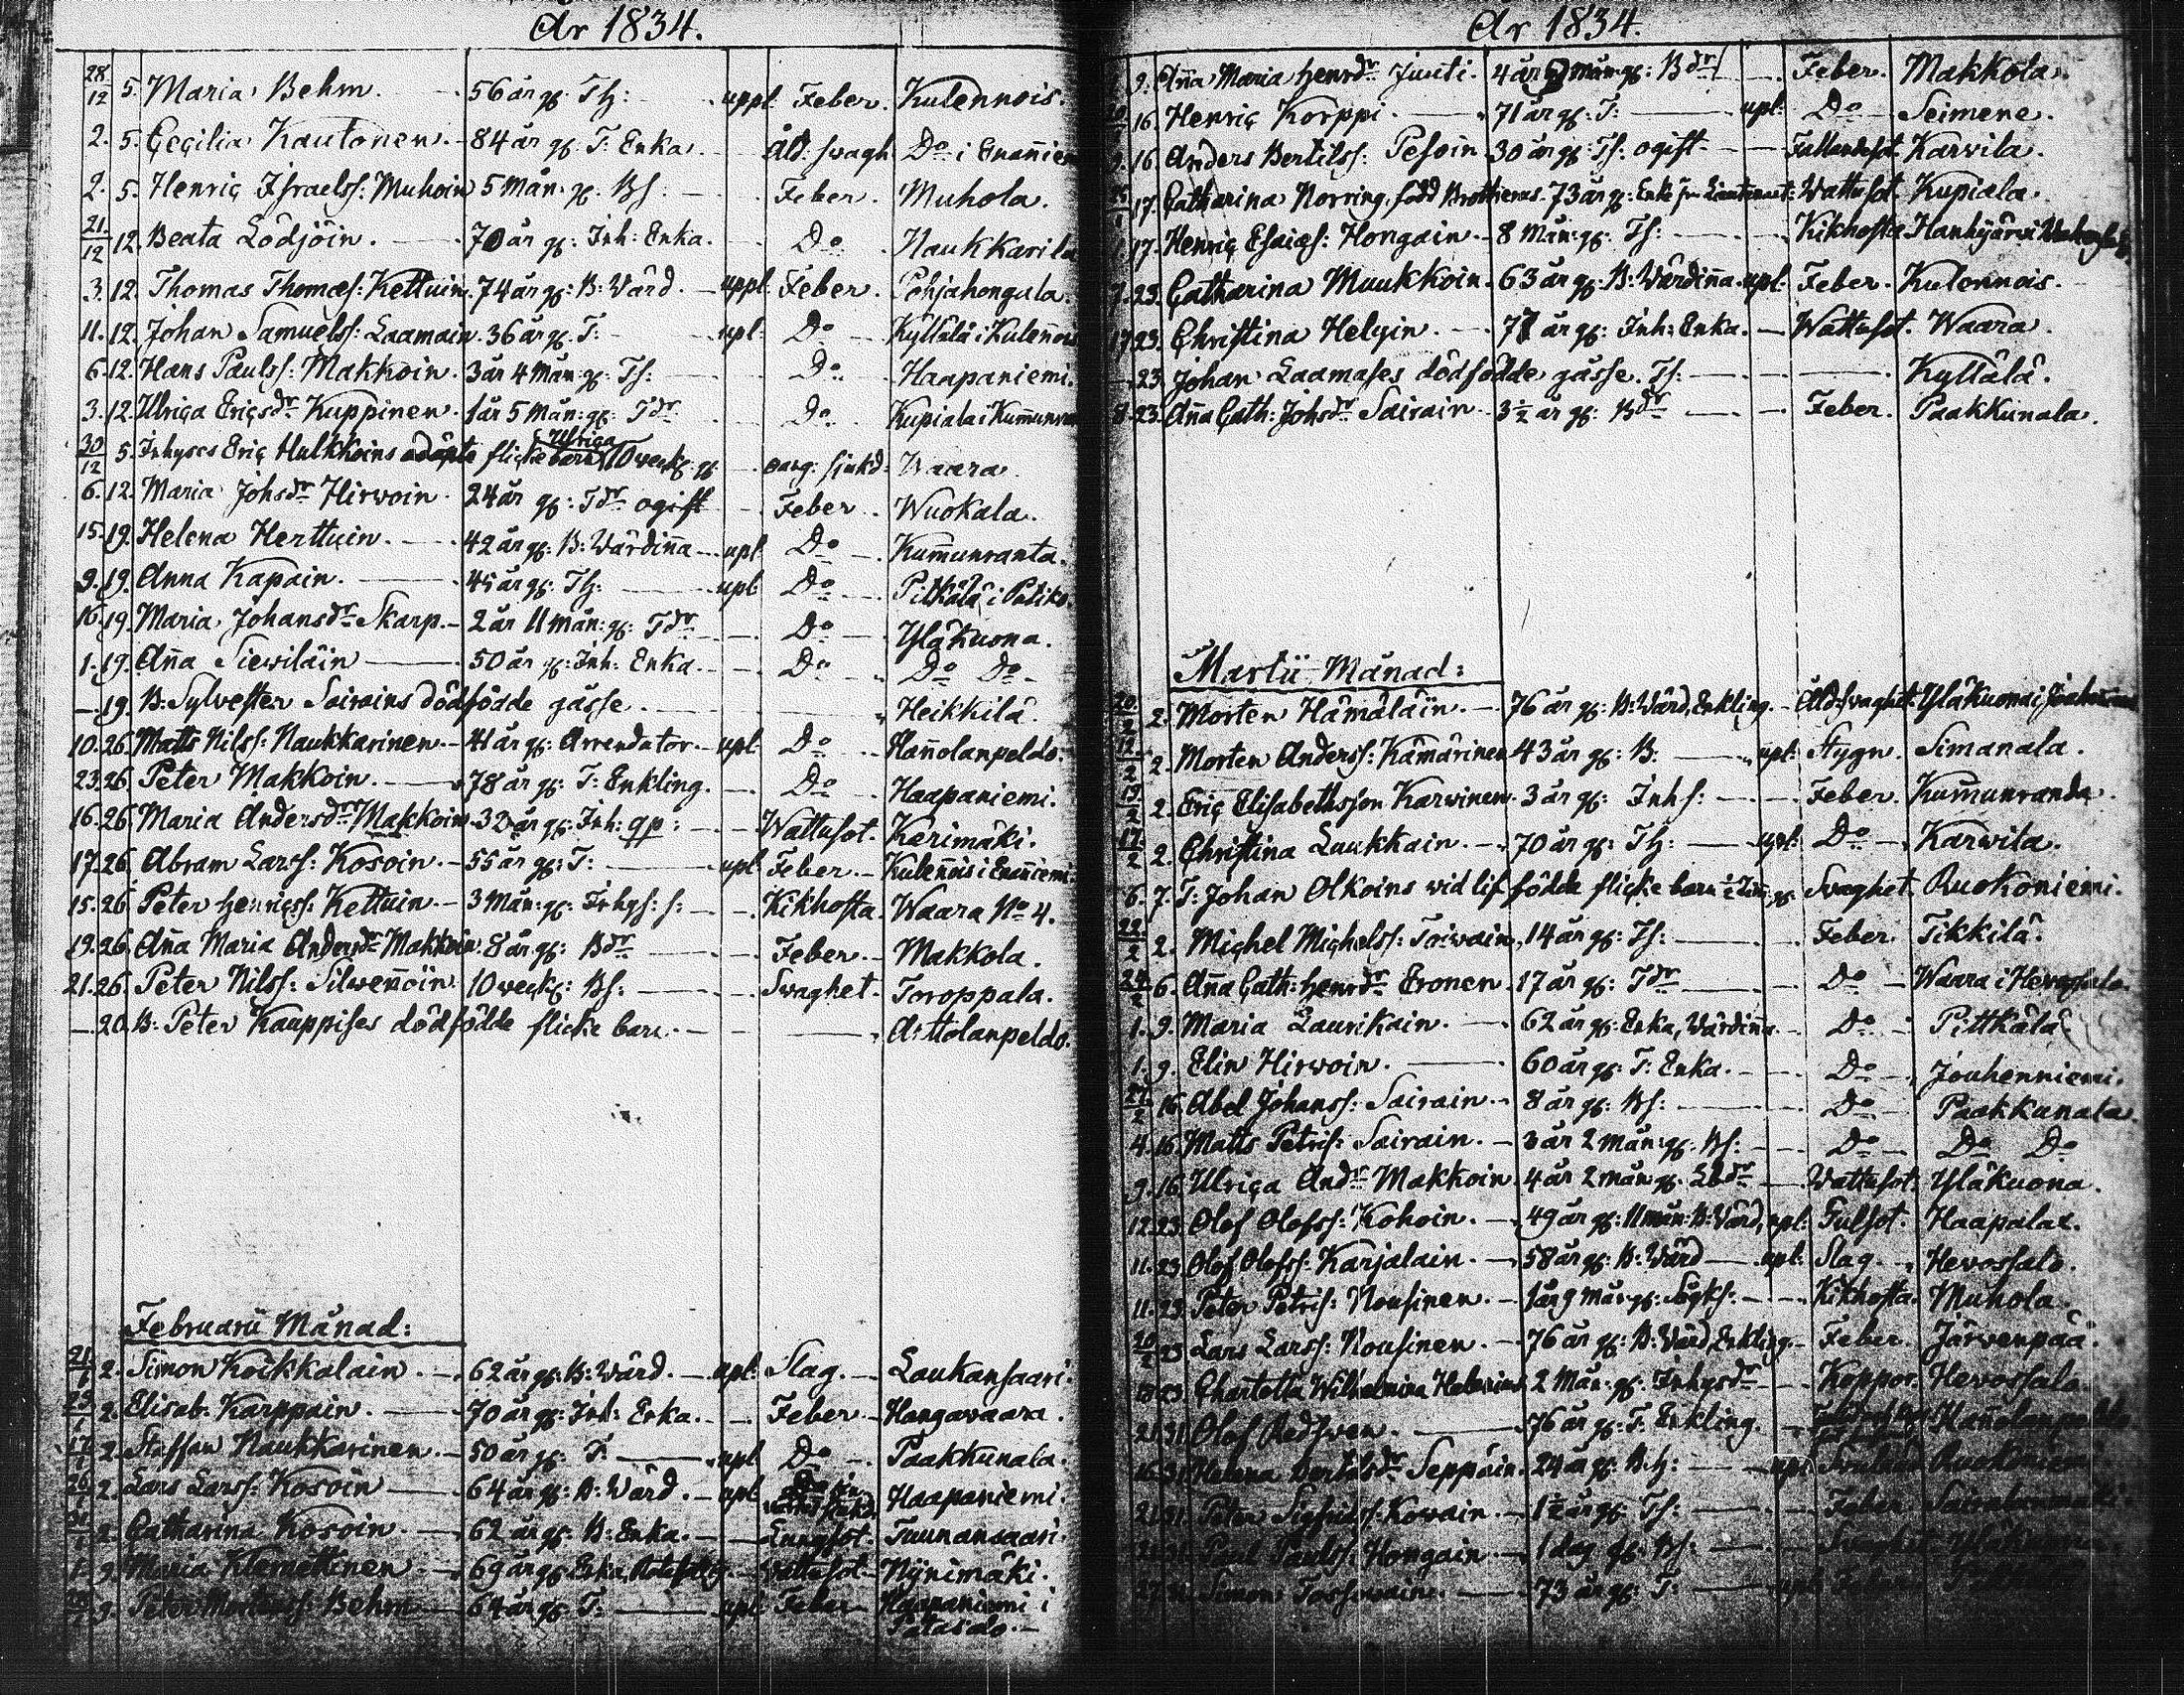 År 1834.
28/12 5. Maria Behm. 56 år gl. Th: uppl: Feber. Kulennois.
2. 5. Cecilia Kautonen. 84 år gl. T: Enka. Åld: svagh. Do i
2. 5. Henric Israelss: Muhoin 5 Mån: gl. Bs: Feber. Muhola.
21/12 12. Beata Lödjöin. 70 år gl: Inh: Enka. Do Naukkarila
3. 12. Thomas Thomæs: Kettuin. 74 år gl: B: Wärd. uppl: Feber. Pohjahongula.
11. 12. Johan Samuelss: Laamain. 36 år gl. T: upl: Do Kyllälä i Kulennois
6. 12. Hans Paulss: Makkoin. 3 år 4 Mån: gl. Ts: Do Haapaniemi.
3. 12. Ulrica Ericsdr Kuppinen. 1 år 5 Mån: gl: Tdr Do Kupiala i
30/12 5. Inhyses Eric Hulkkoins flicke barn Ulrica 10 veck: gl. sjukd: Waara.
6. 12. Maria Johsdr Hirwoin. 24 år gl: Tdr ogift Feber. Wuokala.
15. 19. Helena Herttuin. 42 år gl: B: Wärdinna upl: Do Kummunranta.
9. 19. Anna Kapain. 45 år gl: Th: upl: Do Pitkälä i
16. 19. Maria Johansdr Skarp. 2 år 11 mån: gl: Tdr Do Yläkuona.
1. 19. Anna Siewiläin 50 år gl: Inh: Enka. Do Do Do
19. B: Sylvester Sairains dödfödde gåsse. Heikkilä.
10. 26. Matts Nilss: Naukkarinen. 41 år gl: Arrendator. upl: Do Hannolanpeldo.
23. 26. Peter Makkoin. 78 år gl: T: Enkling. Do Haapaniemi.
16. 26. Maria Andersdr Makkoin. 32 år gl: Inh: Wattusot. Kerimäki.
17. 26. Abram Larss: Kosoin. 55 år gl: T: upl: Feber. Kulennois i
15. 26. Peter Henricss: Kettuin. 3 Mån: gl: Inhys: s: Kikhosta. Waara No 4.
19. 26. Anna Maria Andersdr Makkoin. 8 år gl: Bdr Feber. Makkola.
21. 26. Peter Nilss: Silwennoin. 10 veck: Bs: Svaghet. Toroppala.
20. B: Peter Kauppises dödfödde flicke barn. Anttolanpeldo.
Februarii Månad:
21/1 2. Simon Kockkalain. 62 år gl: B: Wärd. upl: Slag. Laukansaari.
2. Elisab: Karppain. 70 år gl: Inh: Enka. Feber. Hangawaara.
17/1 2. Staffan Naukkarinen. 50 år gl: T: upl: Do Paakkunala.
26/1 2. Lars Larss: Kosoin 64 år gl: B: Wärd. upl: Haapaniemi.
2. Catharina Kosoin. 62 år gl: B: Enka. Lungsot. Tuunansaari.
1. 9. Maria Klemettinen 69 år gl: Enka, Wattusot. Nynimäki.
9. Peter Mortenss: Behm 64 år gl: T: upl: Feber Haapaniemi i
År 1834.
9. Anna Maria Henrsdr Juuti. 4 år mån: gl: Bdr Feber. Makkola.
16. Henric Korppi. 71 år gl: T: upl: Do Seimene.
16. Anders Bertilss: Pesoin 30 år gl: Ts: ogift Fallandesot. Karvila.
17. Catharina Norring, född Brotherus. 73 år gl: Enk. Wattusot. Kupiala.
17. Henric Esaiæs: Hongain. 8 Mån: gl: Ts: Kikhosta. Hanhijärvi
7. 23. Catharina Muukkoin. 63 år gl: B: Wärdinna. upl: Feber. Kulennois.
17. 23. Christina Helgin. 77 år gl: Inh: Enka. Wattusot. Waara.
23. Johan Laamases dödfödde gåsse. Ts: Kyllälä.
8. 23. Anna Cath: Johsdr Sairain. 3½ år gl: Bdr Feber. Paakkunala.
Martii Månad:
20/2 2. Morten Hämäläin. 76 år gl: B: Wärd, Enkling. Åld: svaghet. Yläkuona i
12/2 2. Morten Anderss: Kämärinen 43 år gl: B: upl: Stygn. Simanala.
13/2 2. Eric Elisabethsson Karvinen. 3 år gl: Inhs: Feber. Kummunranda.
17/2 2. Christina Luukkain. 70 år gl: Th: upl: Do Karwila.
6. 7. T: Johan Olkoins vid lif födde flicke barn Svaghet. Ruokoniemi.
22/2 2. Michel Michelss: Toiwain, 14 år gl: Ts: Feber. Tikkilä.
24/2 6. Anna Cath: Henrsdr Eronen. 17 år gl: Tdr Do Waara i Hevossalo.
1. 9. Maria Laurikain. 62 år gl: Enka, Wärdinna. Do Pittkälä
1. 9. Elin Hirwoin. 60 år gl: T: Enka. Do Jouhenniemi.
27/2 16. Abel Johanss: Sairain. 8 år gl: Bs: Do Paakkunala.
4. 16. Matts Petris: Sairain. 3 år 2 mån: gl: Bs: Do Do Do
9. 16. Ulrica Andr Makkoin. 4 år 2 mån: gl: Wattusot. Yläkuona.
12. 23. Olof Olofss: Kohoin. 49 år gl: 11 mån: B: Wärd, upl: Tulsot. Haapala.
11. 23. Olof Olofss: Karjalain. 58 år gl: B: Wärd upl: Slag. Hevossalo.
11. 23. Peter Petris: Nousinen. 1 år 9 mån: gl: Kikhosta. Muhola.
20/2 23 Lars Larss: Nousinen. 76 år gl: B: Wärd, Enkling. Feber. Järvenpää.
23. Charlotta Wilhelmina Helenius 2 Mån: gl: Inhysdr Koppor. Hevossalo
21. 31. Olof Redsven. 76 år gl: T: Enkling. Hannolanpeldo
16. 31. Helena Bertilsdr Seppäin. 24 år gl: Bh: upl: Ruokoniemi
21. 31. Peter Sigfridss: Kowain. 1½ år gl: Ts: Feber
31. Paul Paulss: Hongain 1 dag gl: Bs: Svaghet
27. 31 Simon 73 år gl: T: